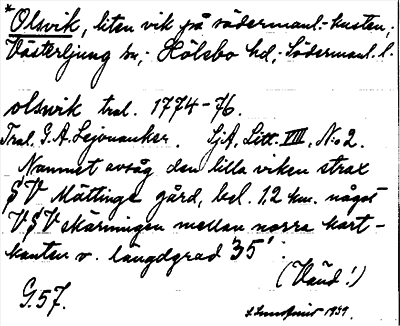 *Olsvik, liten vik på södermanl.-kusten;
Västerljung sn; Hölebo hd; Södermanl. l.
olsvik tral. 1774-76.
Tral. G.A. Lejonanker. SjA, Litt. VIII, N:o 2.
Namnet avsåg den lilla viken strax
SV Mättinge gård, bel. 1,2 km. något
V S V skärningen mellan norra kart-
kanten o. längdgrad 35'.
(Vänd!)
G. 57.
1939.